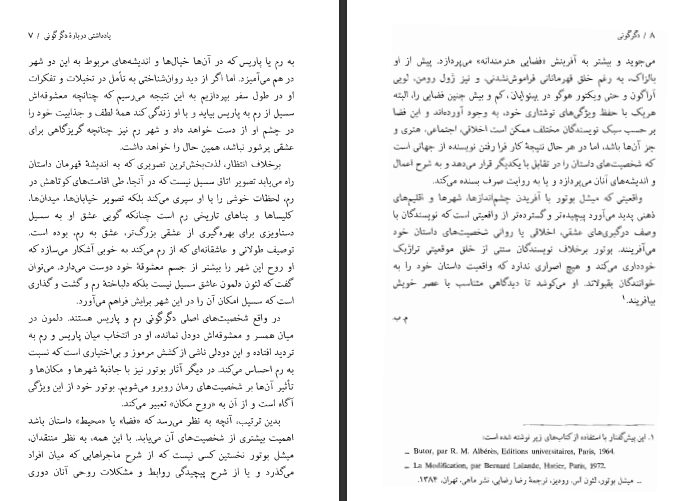 یادداشتی دربارهٔ دگرگونی / ۷
به رم یا پاریس که در آن‌ها خیال‌ها و اندیشه‌های مربوط به این دو شهر
در هم می‌آمیزد. اما اگر از دید روان‌شناختی به تأمل در تخیلات و تفکرات
او در طول سفر بپردازیم به این نتیجه می‌رسیم که چنانچه معشوقه‌اش
سسیل از رم به پاریس بیاید و با او زندگی کند همهٔ لطف و جذابیت خود را
در چشم او از دست خواهد داد و شهر رم نیز چنانچه گریزگاهی برای
عشقی پرشور نباشد، همین حال را خواهد داشت.
برخلاف انتظار، لذت‌بخش‌ترین تصویری که به اندیشهٔ قهرمان داستان
راه می‌یابد تصویر اتاق سسیل نیست که در آنجا، طی اقامت‌های کوتاهش در
رم، لحظات خوشی را با او سپری می‌کند بلکه تصویر خیابان‌ها، میدان‌ها،
کلیساها و بناهای تاریخی رم است چنانکه گویی عشق او به سسیل
دستاویزی برای بهره‌گیری از عشقی بزرگ‌تر، عشق به رم، بوده است.
توصیف طولانی و عاشقانه‌ای که از رم می‌کند به خوبی آشکار می‌سازد که
او روح این شهر را بیشتر از جسم معشوقهٔ خود دوست می‌دارد. می‌توان
گفت که لئون دلمون عاشق سسیل نیست بلکه دلباختهٔ رم و گشت و گذاری
است که سسیل امکان آن را در این شهر برایش فراهم می‌آورد.
در واقع شخصیت‌های اصلی دگرگونی رم و پاریس هستند. دلمون در
میان همسر و معشوقه‌اش دودل نمانده، او در انتخاب میان پاریس و رم به
تردید افتاده و این دودلی ناشی از کشش مرموز و بی‌اختیاری است که نسبت
به رم احساس می‌کند. در دیگر آثار بوتور نیز با جاذبهٔ شهرها و مکان‌ها و
تأثیر آن‌ها بر شخصیت‌های رمان روبرو می‌شویم. بوتور خود از این ویژگی
آگاه است و از آن به «روح مکان» تعبیر می‌کند.
بدین ترتیب، آنچه به نظر می‌رسد که «فضا» یا «محیط» داستان باشد
اهمیت بیشتری از شخصیت‌های آن می‌یابد. با این همه، به نظر منتقدان،
میشل بوتور نخستین کسی نیست که از شرح ماجراهایی که میان افراد
می‌گذرد و یا از شرح پیچیدگی روابط و مشکلات روحی آنان دوری
۸ / دگرگونی
می‌جوید و بیشتر به آفرینش «فضایی هنرمندانه» می‌پردازد. پیش از او
بالزاک، به رغم خلق قهرمانانی فراموش‌نشدنی، و نیز ژول رومن، لویی
آراگون و حتی ویکتور هوگو در بینوایان، کم و بیش چنین فضایی را، البته
هریک با حفظ ویژگی‌های نوشتاری خود، به وجود آورده‌اند و این فضا
بر حسب سبک نویسندگان مختلف ممکن است اخلاقی، اجتماعی، هنری و
جز آن‌ها باشد، اما در هر حال نتیجهٔ کار فرا رفتن نویسنده از جهانی است
که شخصیت‌های داستان را در تقابل با یکدیگر قرار می‌دهد و به شرح اعمال
و اندیشه‌های آنان می‌پردازد و یا به روایت صرف بسنده می‌کند.
واقعیتی که میشل بوتور با آفریدن چشم‌اندازها، شهرها و اقلیم‌های
ذهنی پدید می‌آورد پیچیده‌تر و گسترده‌تر از واقعیتی است که نویسندگان با
وصف درگیری‌های عشقی، اخلاقی یا روانی شخصیت‌های داستان خود
می‌آفرینند. بوتور برخلاف نویسندگان سنتی از خلق موقعیتی تراژیک
خودداری می‌کند و هیچ اصراری ندارد که واقعیت داستان خود را به
خوانندگان بقبولاند. او می‌کوشد تا دیدگاهی متناسب با عصر خویش
بیافریند.۱
م.ب.
۱. این پیش‌گفتار با استفاده از کتاب‌های زیر نوشته شده است:
_ Butor, par R. M. Albérès, Editions universitaires, Paris, 1964.
_ La Modification, par Bernard Lalande, Hatier, Paris, 1972.
_ میشل بوتور، لئون آس. رودیز، ترجمهٔ رضا رضایی، نشر ماهی، تهران، ۱۳۸۴.